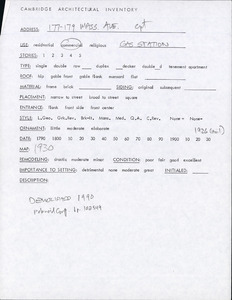 CAMBRIDGE ARCHITECTURAL INVENTORY
ADDRESS: 177-179 MASS. AVE.
USE: residential commercial religious GAS STATION
STORIES: 1 2 3 4 5
TYPE: single double row duplex decker double d tenement apartment
ROOF: hip gable front gable flank mansard flat
MATERIAL: frame brick SIDING: original subsequent
PLACEMENT: narrow to street broad to street square
ENTRANCE: flank front side front center
ORNAMENT: little moderate elaborate
DATE: 1790 1800 10 20 30 40 50 60 70 80 90 1900 10 20 30
MAP: 1930
REMODELING: drastic moderate minor CONDITION: poor fair good excellent
IMPORTANCE TO SETTING: detrimental none moderate great INITIALED:
DESCRIPTION:
DEMOLISHED 1990